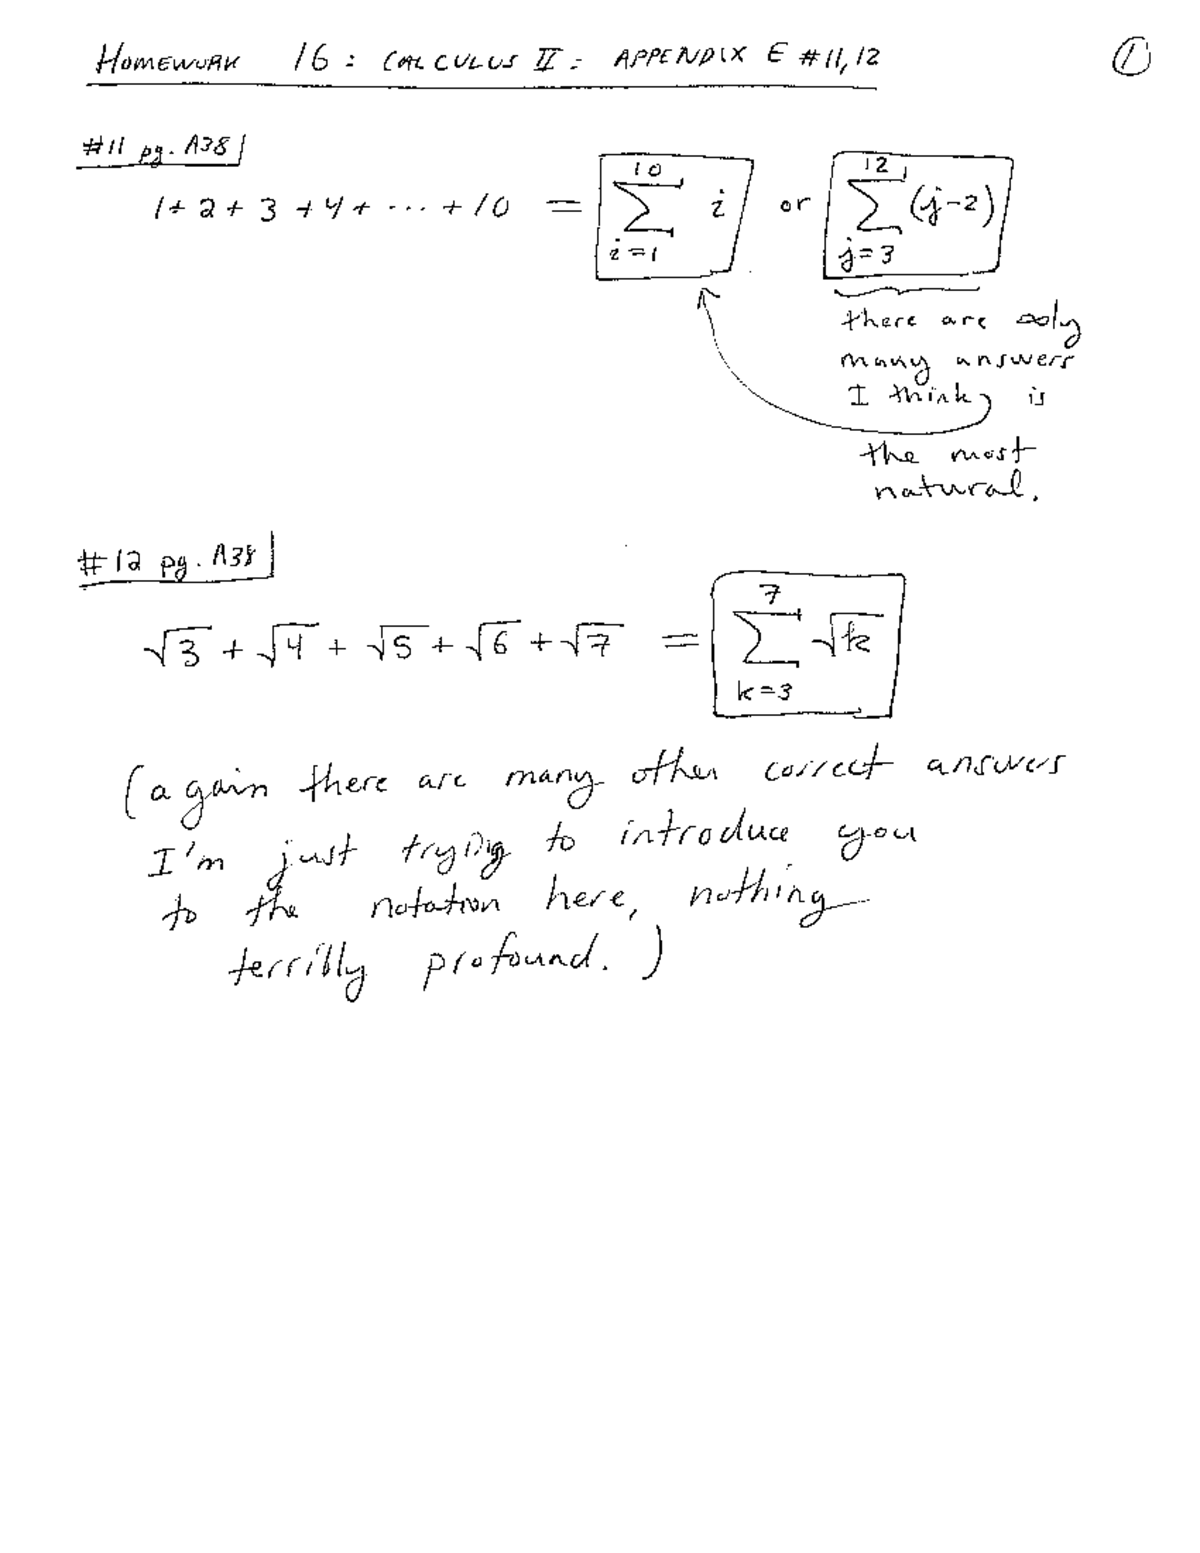 HOMEWORK 16: CALCULUS II: APPENDIX E #11,12 ①
#11 pg. A38
1+2+3+4+⋯+10 = \sum_{i=1}^{10} i or \sum_{j=3}^{12} (j-2)
there are ∞ly
many answers
I think is
the most
natural.
#12 pg. A38
√3 + √4 + √5 + √6 + √7 = \sum_{k=3}^{7} √k
(again there are many other correct answers
I'm just trying to introduce you
to the notation here, nothing
terribly profound.)